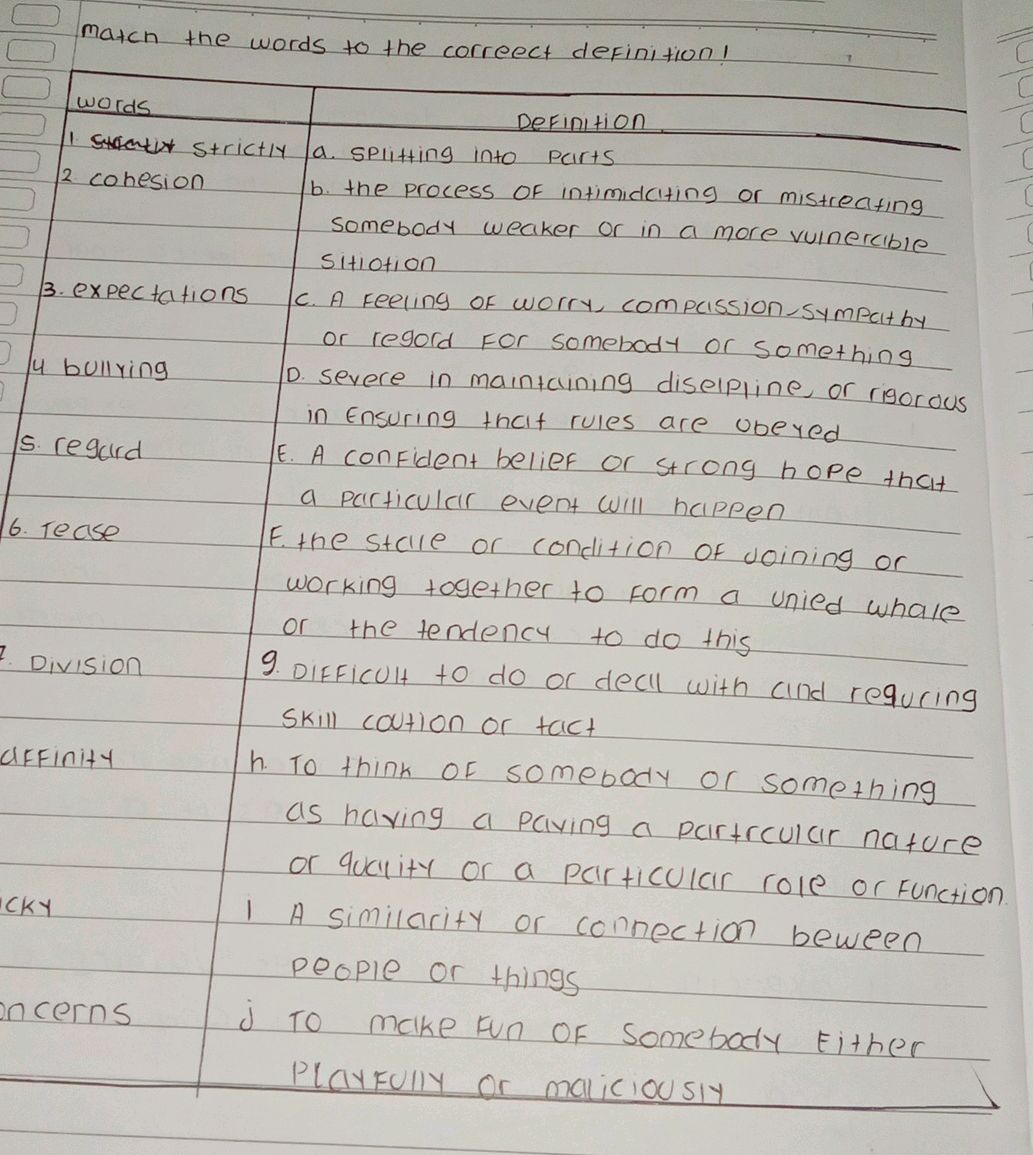 match the words to the correect definition!
words
Definition
1. strictly a. splitting into parts
2. cohesion b. the process of intimidating or mistreating
somebody weaker or in a more vulnerable
sitiotion
3. expectations c. A feeling of worry, compassion, sympathy
or regord for somebody or something
4 bullying D. severe in maintaining diselpline, or rigorous
in Ensuring that rules are obeyed
5. regard E. A confident belief or strong hope that
a particular event will happen
6. Tease F. the state or condition of Joining or
working together to form a unied whale
or the tendency to do this
7. Division g. Difficult to do or deal with and reguring
skill coution or tact
affinity h. To think of somebody or something
as having a paving a partrcular nature
or quality or a particular role or function.
icky i A similarity or connection beween
people or things
oncerns j To make fun of somebody Either
playfully or maliciously